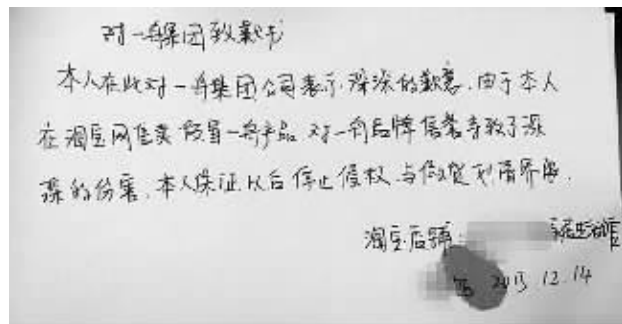 对一舟集团致歉书
本人在此对一舟集团公司表示深深的歉意.由于本人
在淘宝网售卖假冒一舟产品 对一舟品牌信誉导致了深
深的伤害.本人保证以后停止侵权.与假货划清界限.
淘宝店铺: 生活馆
2013.12.14